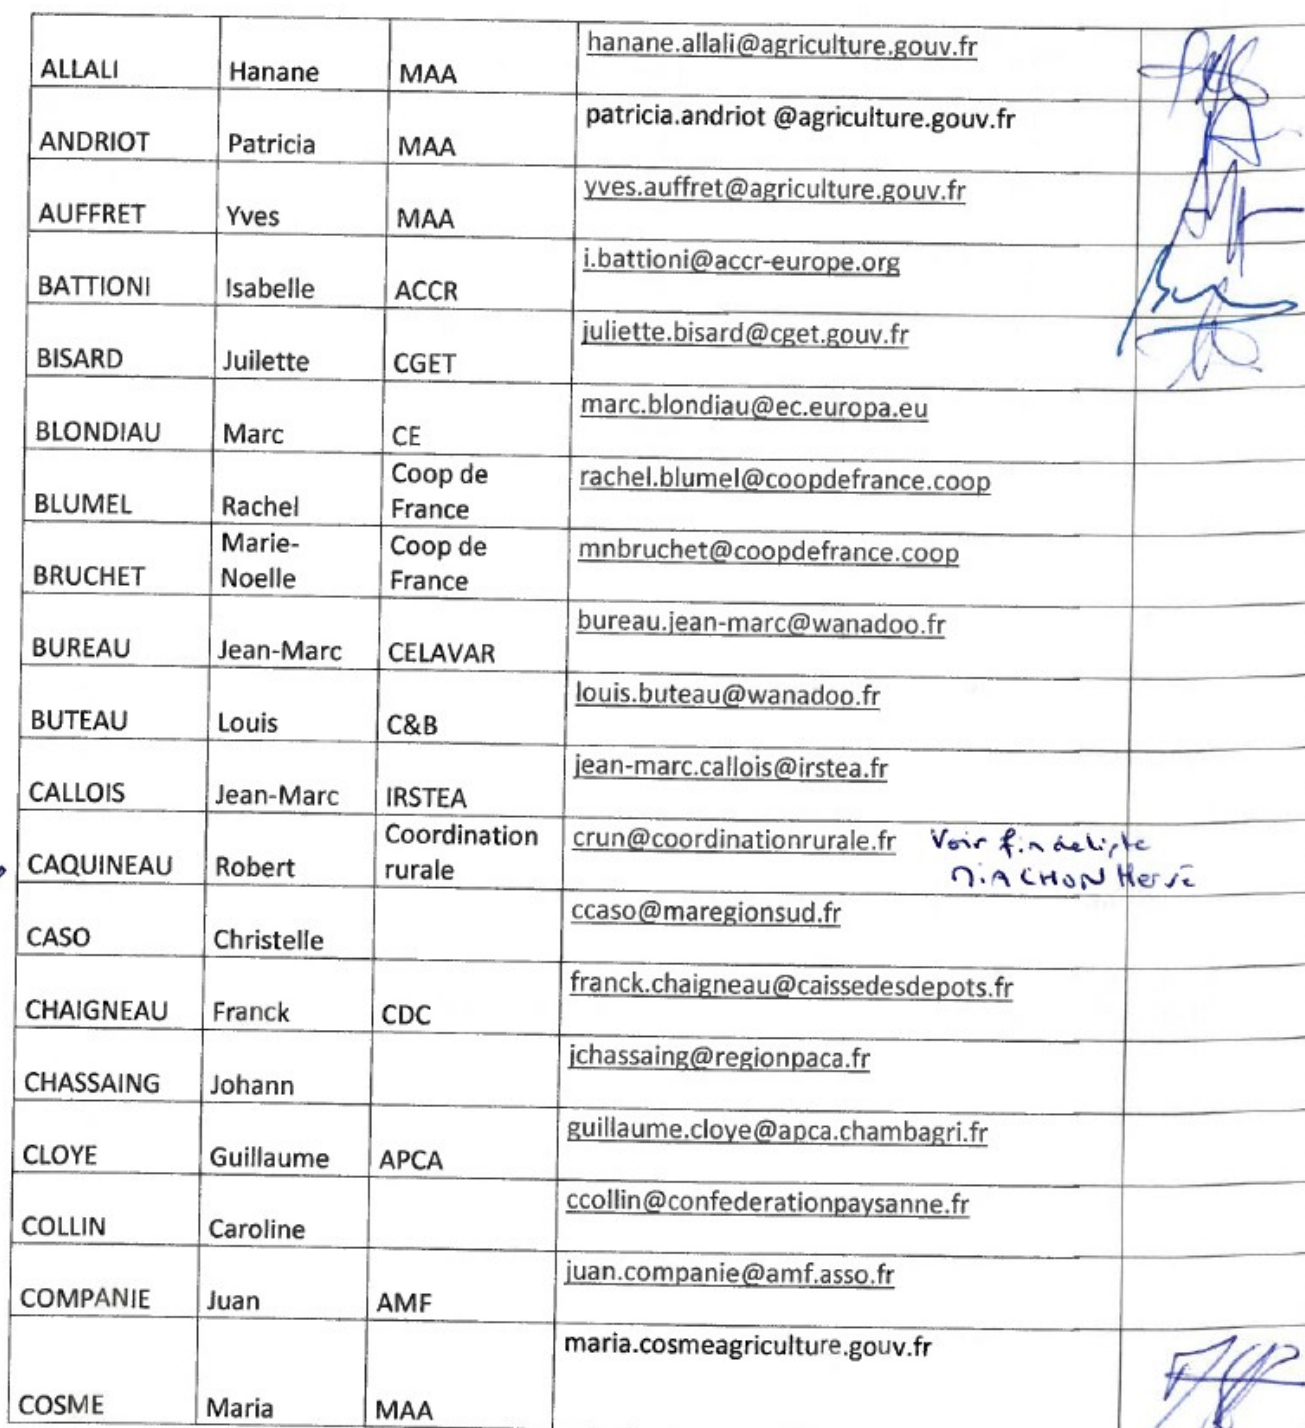 ALLALI Hanane MAA hanane.allali@agriculture.gouv.fr
ANDRIOT Patricia MAA patricia.andriot @agriculture.gouv.fr
AUFFRET Yves MAA yves.auffret@agriculture.gouv.fr
BATTIONI Isabelle ACCR i.battioni@accr-europe.org
BISARD Juilette CGET juliette.bisard@cget.gouv.fr
BLONDIAU Marc CE marc.blondiau@ec.europa.eu
BLUMEL Rachel Coop de France rachel.blumel@coopdefrance.coop
BRUCHET Marie-Noelle Coop de France mnbruchet@coopdefrance.coop
BUREAU Jean-Marc CELAVAR bureau.jean-marc@wanadoo.fr
BUTEAU Louis C&B louis.buteau@wanadoo.fr
CALLOIS Jean-Marc IRSTEA jean-marc.callois@irstea.fr
CAQUINEAU Robert Coordination rurale crun@coordinationrurale.fr Voir fin de liste
MACHON Hervé
CASO Christelle ccaso@maregionsud.fr
CHAIGNEAU Franck CDC franck.chaigneau@caissedesdepots.fr
CHASSAING Johann jchassaing@regionpaca.fr
CLOYE Guillaume APCA guillaume.cloye@apca.chambagri.fr
COLLIN Caroline ccollin@confederationpaysanne.fr
COMPANIE Juan AMF juan.companie@amf.asso.fr
COSME Maria MAA maria.cosmeagriculture.gouv.fr